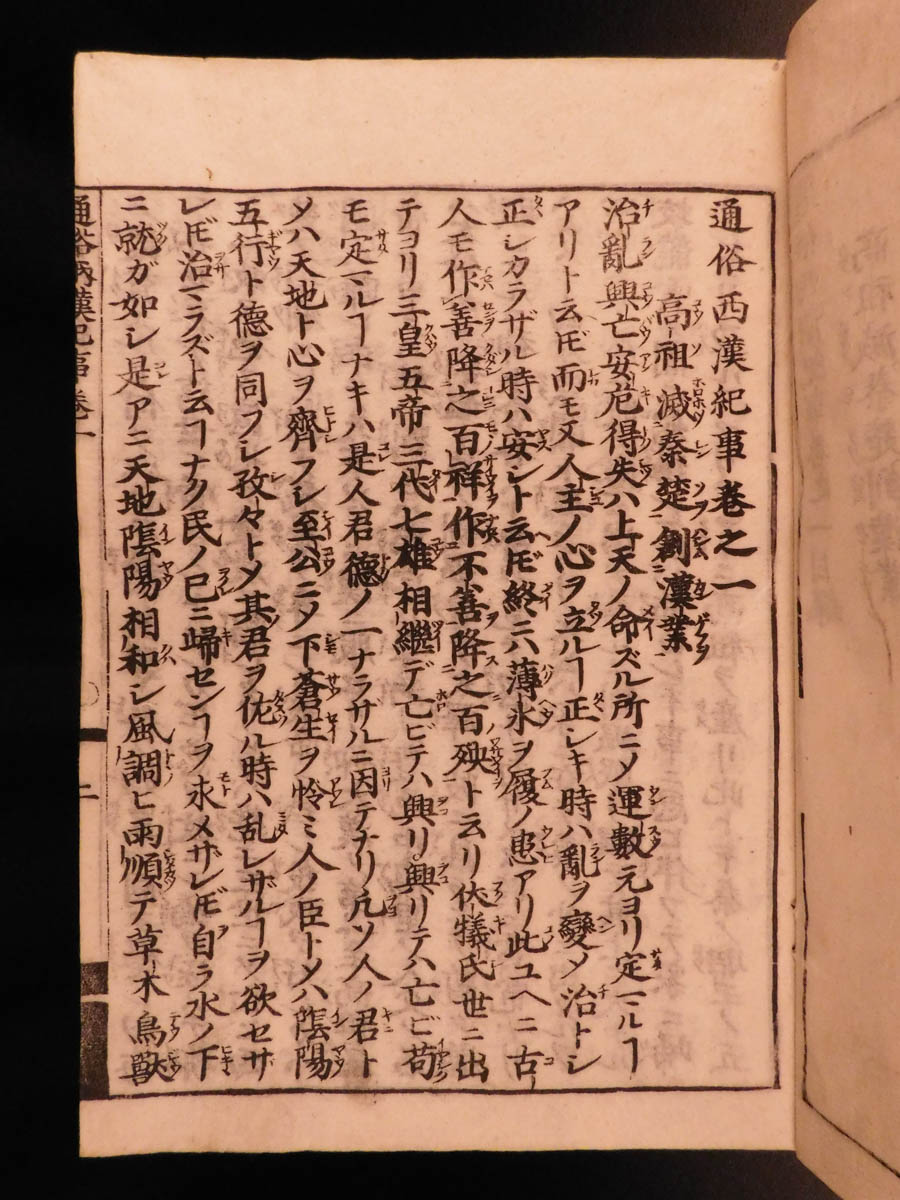 通俗西漢紀事巻之一
高祖滅秦楚創漢業
治亂興亡安危得失ハ上天ノ命ズル所ニメ運數元ヨリ定マルヿ
アリト云𪜈而モ又人主ノ心ヲ立ルヿ正シキ時ハ亂ヲ變メ治トシ
正シカラザル時ハ安シト云𪜈終ニハ薄氷ヲ履ノ患アリ此ユヘニ古
人モ作善降之百祥作不善降之百殃ト云リ伏犧氏世ニ出
テヨリ三皇五帝三代七雄相繼デ亡ビテハ興リ興リテハ亡ビ苟
モ定マルヿナキハ是人君德ノ一ナラザルニ因テナリ凡ソ人ノ君ト
メハ天地ト心ヲ齊フシ至公ニメ下蒼生ヲ怜ミ人ノ臣トメハ陰陽
五行ト德ヲ同フシ孜々トメ其君ヲ佐ル時ハ乱レザルヿヲ欲セザ
レ𪜈治マラズト云ヿナク民ノ己ニ歸センヿヲ求メザレ𪜈自ラ水ノ下
ニ就ガ如シ是アニ天地陰陽相和シ風調ヒ雨順テ草木鳥獸
通俗西漢紀事巻一